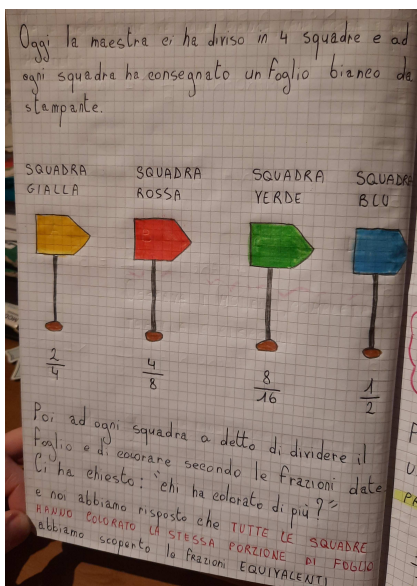 Oggi la maestra ci ha diviso in 4 squadre e ad
ogni squadra ha consegnato un foglio bianco da
stampante.
SQUADRA GIALLA
SQUADRA ROSSA
SQUADRA VERDE
SQUADRA BLU
2/4
4/8
8/16
1/2
Poi ad ogni squadra a detto di dividere il
foglio e di colorare secondo le frazioni date
Ci ha chiesto: "chi ha colorato di più?"
e noi abbiamo risposto che TUTTE LE SQUADRE
HANNO COLORATO LA STESSA PORZIONE DI FOGLIO
abbiamo scoperto le frazioni EQUIVALENTI